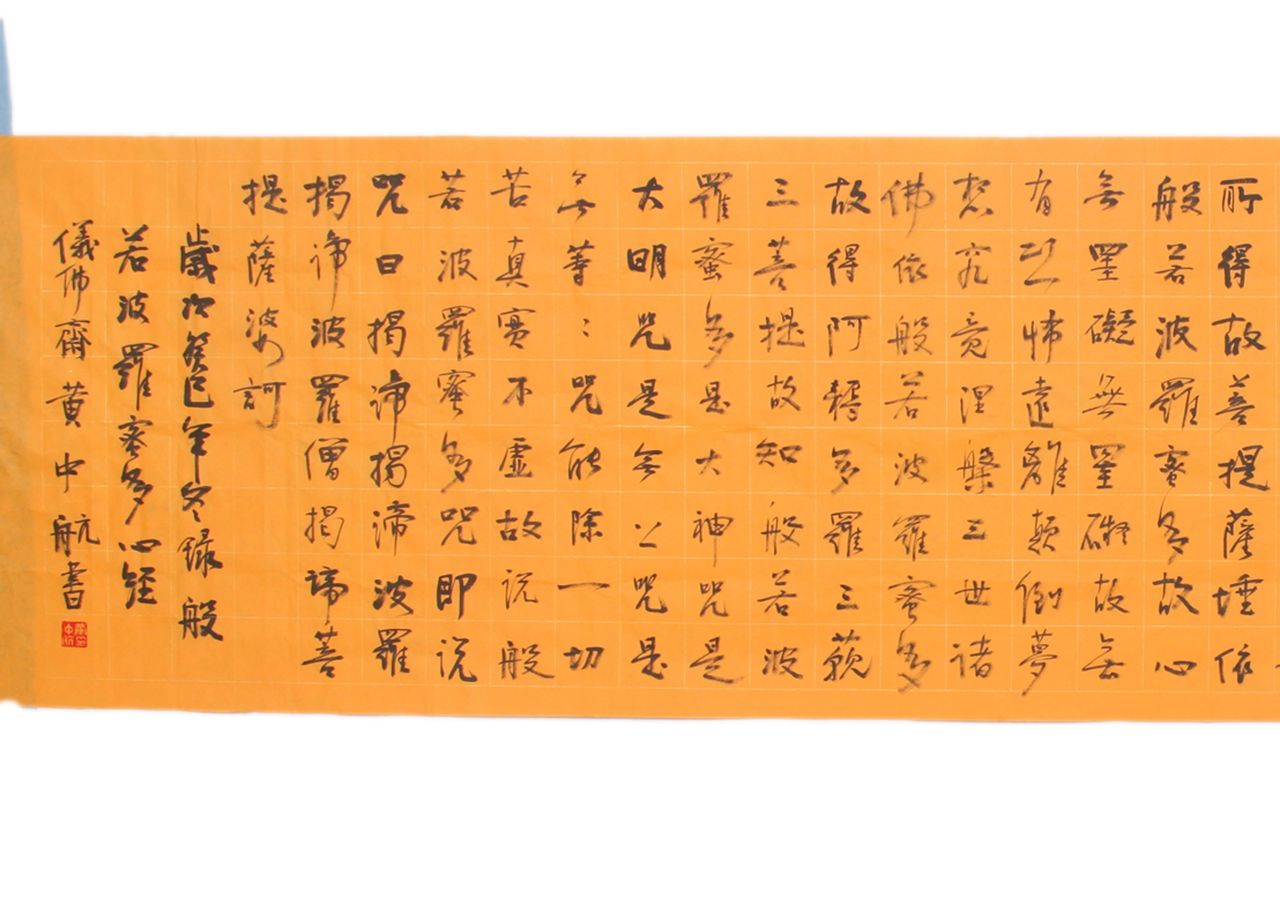 所得故菩提薩埵依
般若波羅蜜多故心
無罣礙無罣礙故無
有恐怖遠離顛倒夢
想究竟涅槃三世諸
佛依般若波羅蜜多
故得阿耨多羅三藐
三菩提故知般若波
羅蜜多是大神咒是
大明咒是無上咒是
無等〻咒能除一切
苦真實不虛故說般
若波羅蜜多咒即說
咒曰揭諦揭諦波羅
揭諦波羅僧揭諦菩
提薩婆訶
歲次癸巳年冬錄般
若波羅蜜多心經
儀佛齋黄中航書